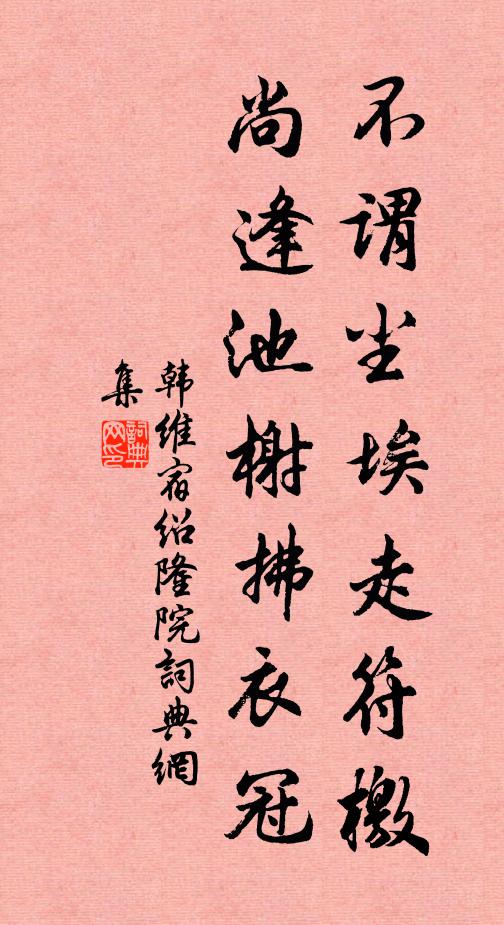 不谓尘埃走符檄
尚逢池榭拂衣冠
韩维宿绍隆院詞典網
集
詞典
网印